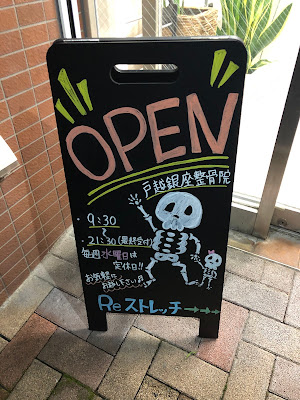 OPEN
戸越銀座整骨院
・9:30
〜
・21:30(最終受付)
毎週水曜日は
定休日!!
お気軽に
お越し下さい♬
Reストレッチ→→→